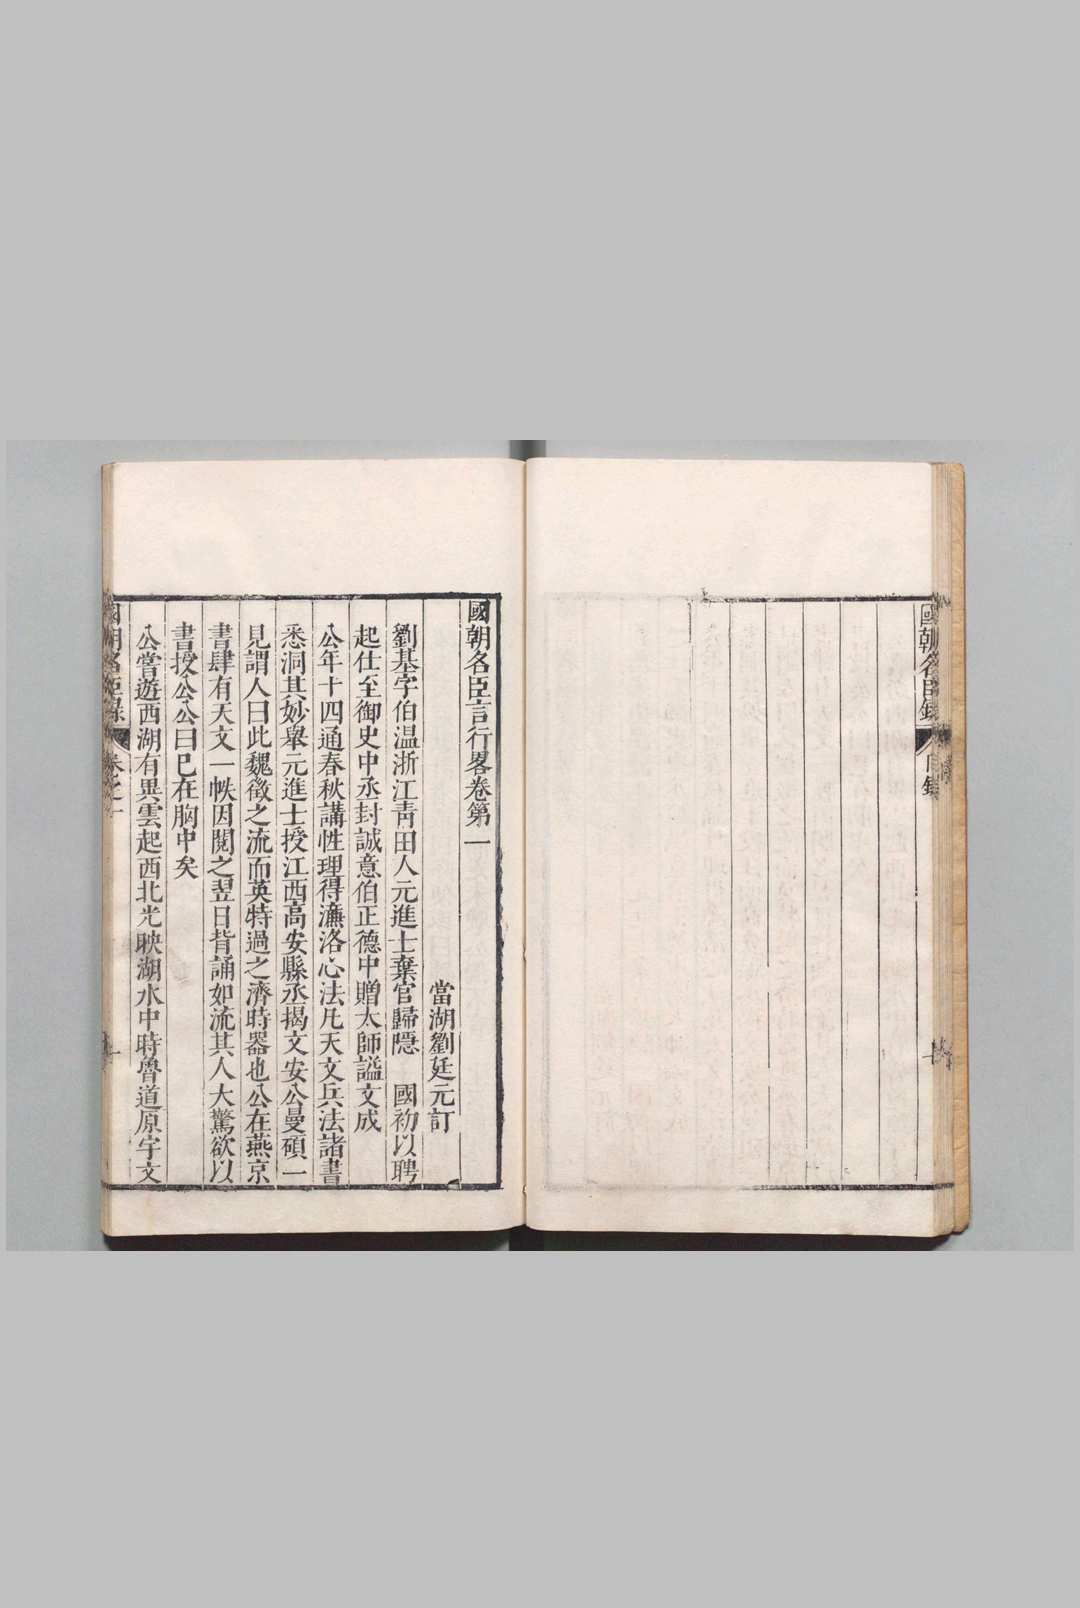 國朝名臣錄
目錄
國朝名臣言行畧卷第一
當湖劉廷元訂
劉基字伯温浙江靑田人元進士棄官歸隱　國初以聘
起仕至御史中丞封誠意伯正德中贈太師謚文成
公年十四通春秋講性理得濂洛心法凡天文兵法諸書
悉洞其妙舉元進士授江西高安縣丞揭文安公曼碩一
見謂人曰此魏徵之流而英特過之濟時器也公在燕京
書肆有天文一帙因閱之翌日背誦如流其人大驚欲以
書授公公曰已在胸中矣
公嘗遊西湖有異雲起西北光映湖水中時魯道原宇文
國朝名臣錄
卷之一
一